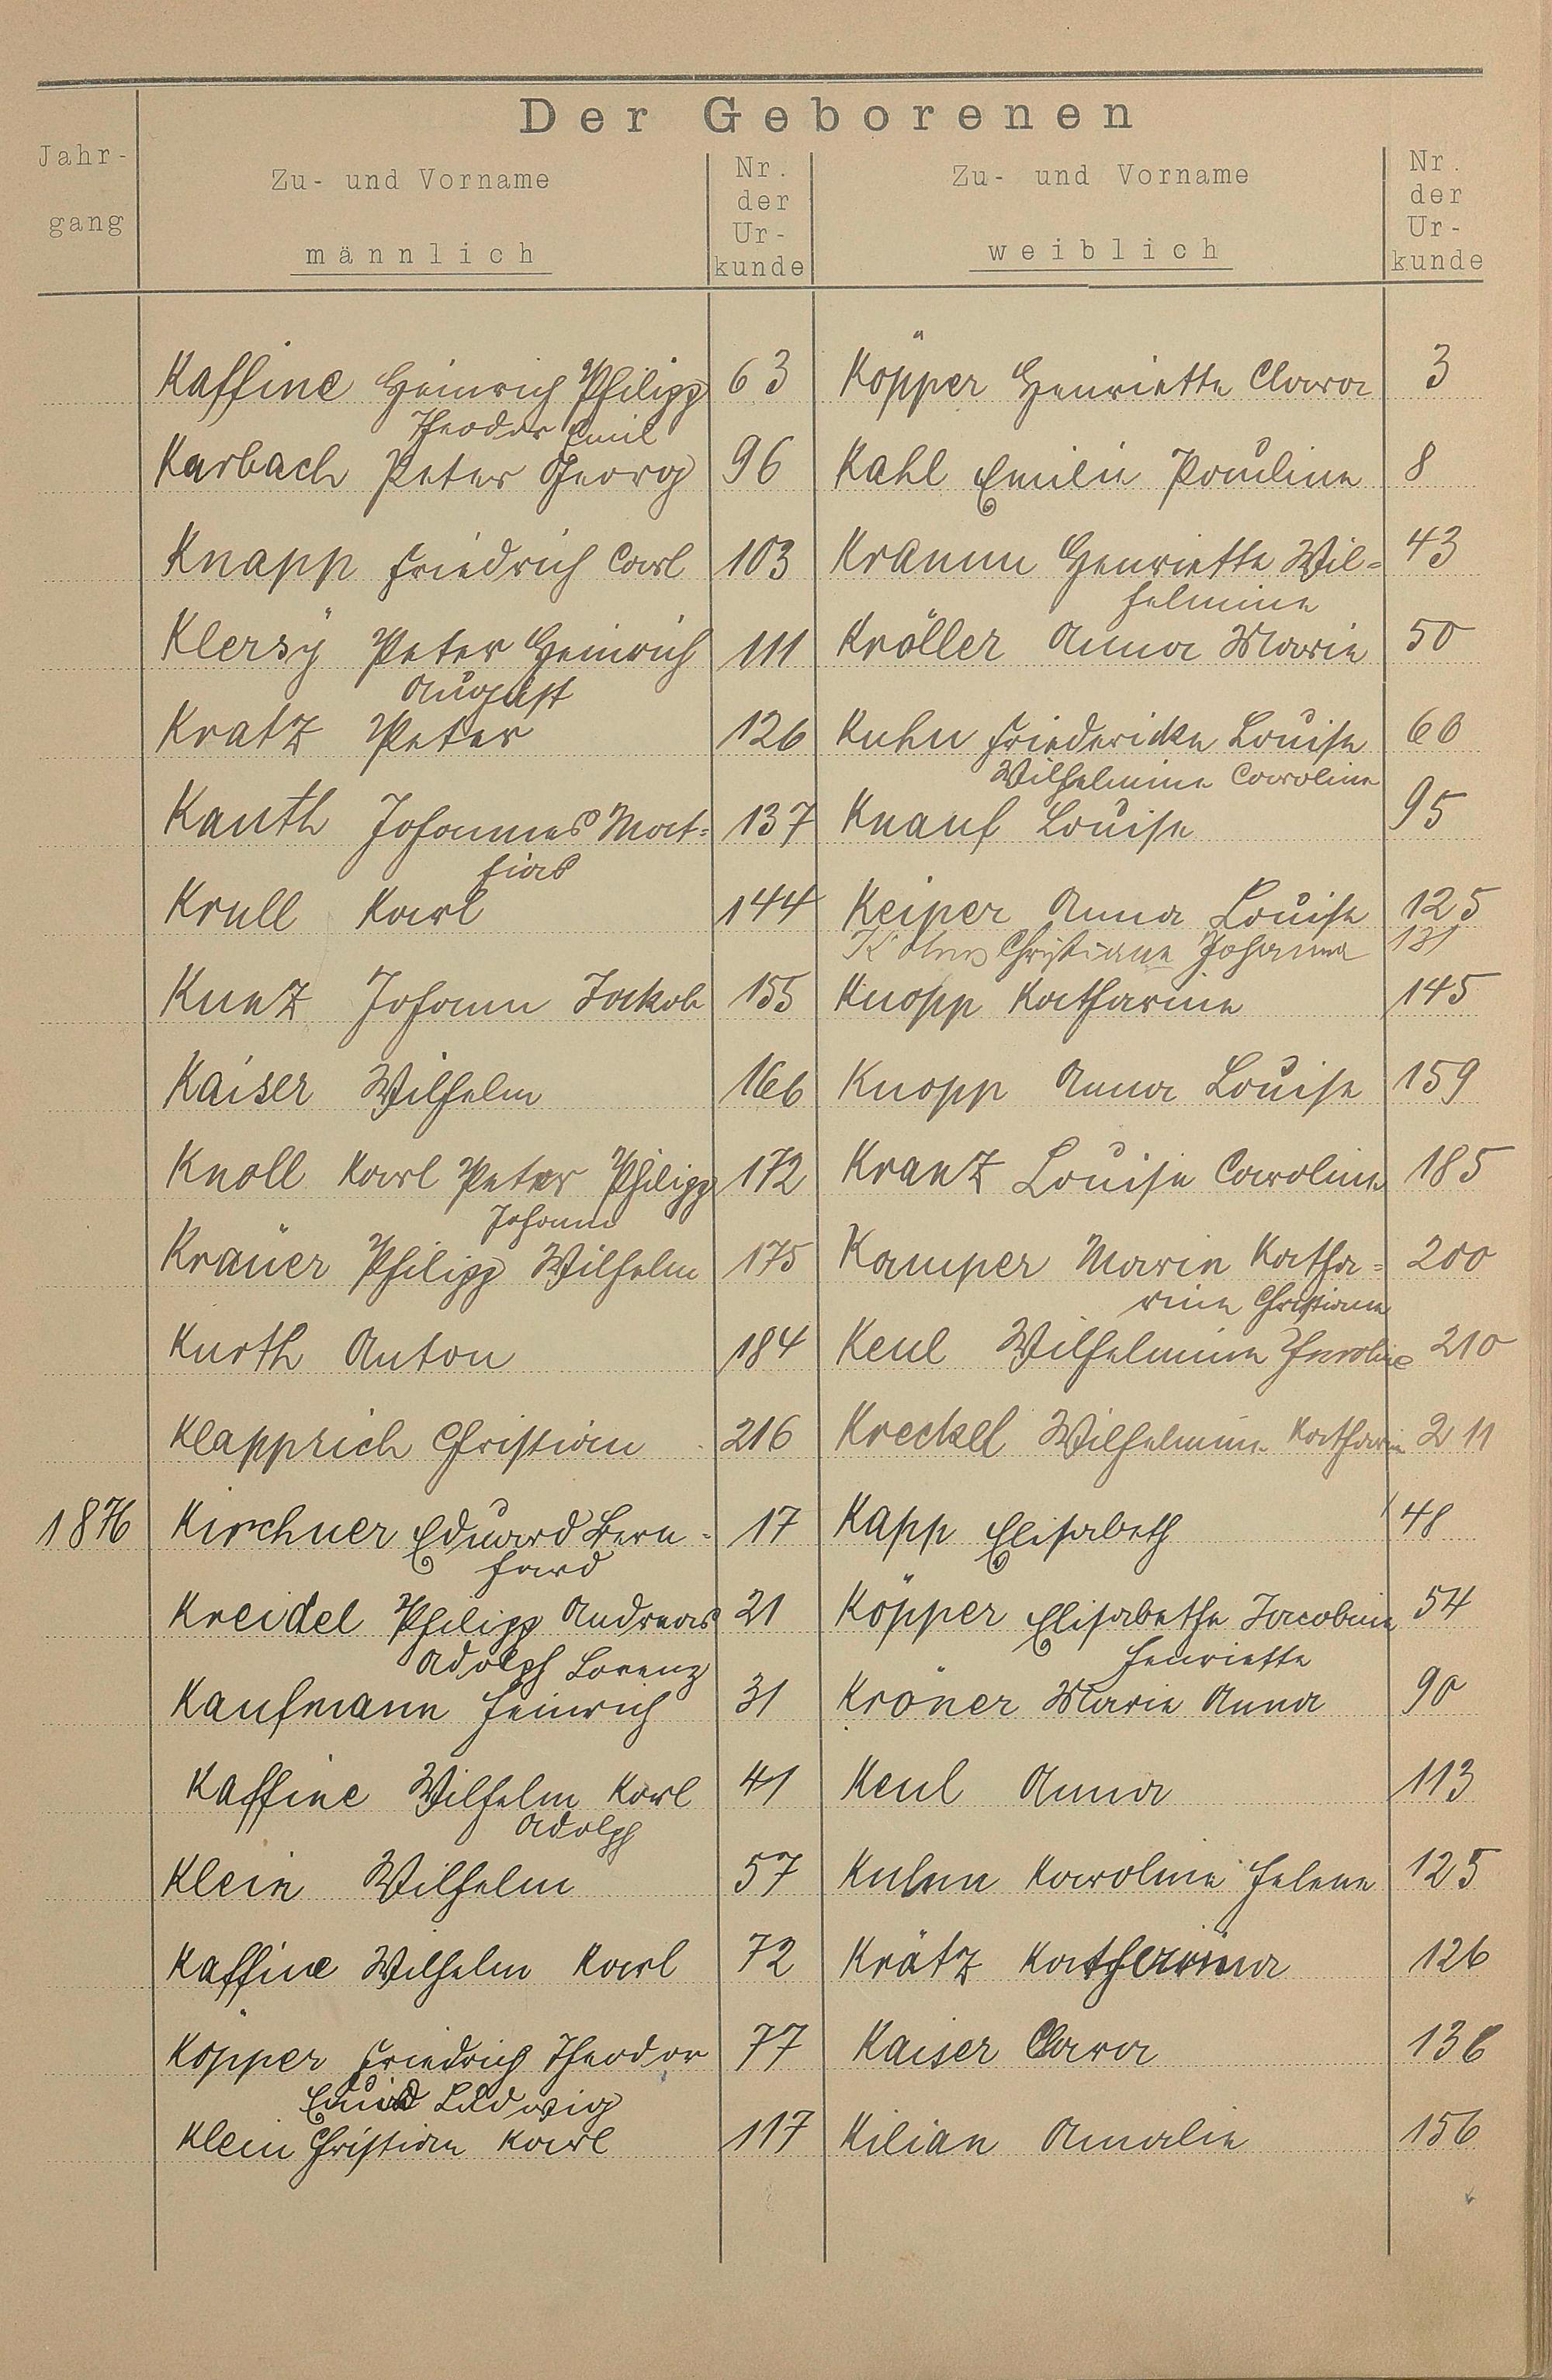 Der Geborenen
Jahr-
gang
Zu- und Vorname
männlich
Nr.
der
Ur-
kunde
Zu- und Vorname
weiblich
Nr.
der
Ur-
kunde
Kaffine Heinrich Philipp 63 Köpper Henriette Clara 3
Theodor Emil
Karbach Peter Georg 96 Kahl Emilie Pauline 8
Knapp Friedrich Carl 103 Kramm Henriette Wil= 43
helmine
Klersÿ Peter Heinrich 111 Kröller Anna Marie 50
August
Kratz Peter 126 Kuhn Friedericke Louise 60
Wilhelmine Caroline
Kauth Johannes Mat= 137 Knauf Louise 95
hias
Krull Karl 144 Keiper Anna Louise 125
Christiane Johanna 131
Kunz Johann Jakob 155 Knopp Katharine 145
Kaiser Wilhelm 166 Knopp Anna Louise 159
Knoll Karl Peter Philipp 172 Kranz Louise Caroline 185
Johann
Kräuer Philipp Wilhelm 175 Kamper Marie Katha= 200
rine Christiane
Kurth Anton 184 Keul Wilhelmine Karoline 210
Klapprich Christian 216 Kreckel Wilhelmine Katharine 211
1876 Kirchner Eduard Bern- 17 Kapp Elisabeth 48
hard
Kreidel Philipp Andreas 21 Köpper Elisabethe Jacobine 54
Adolph Lorenz Henriette
Kaufmann Heinrich 31 Kröner Marie Anna 90
Kaffine Wilhelm Karl 41 Keul Anna 113
Adolph
Klein Wilhelm 57 Kulmn Karoline Helene 125
Kaffine Wilhelm Karl 72 Krätz Katharina 126
Köpper Friedrich Theodor 77 Kaiser Clara 136
Ludwig
Klein Christian Karl 117 Kilian Amalie 156